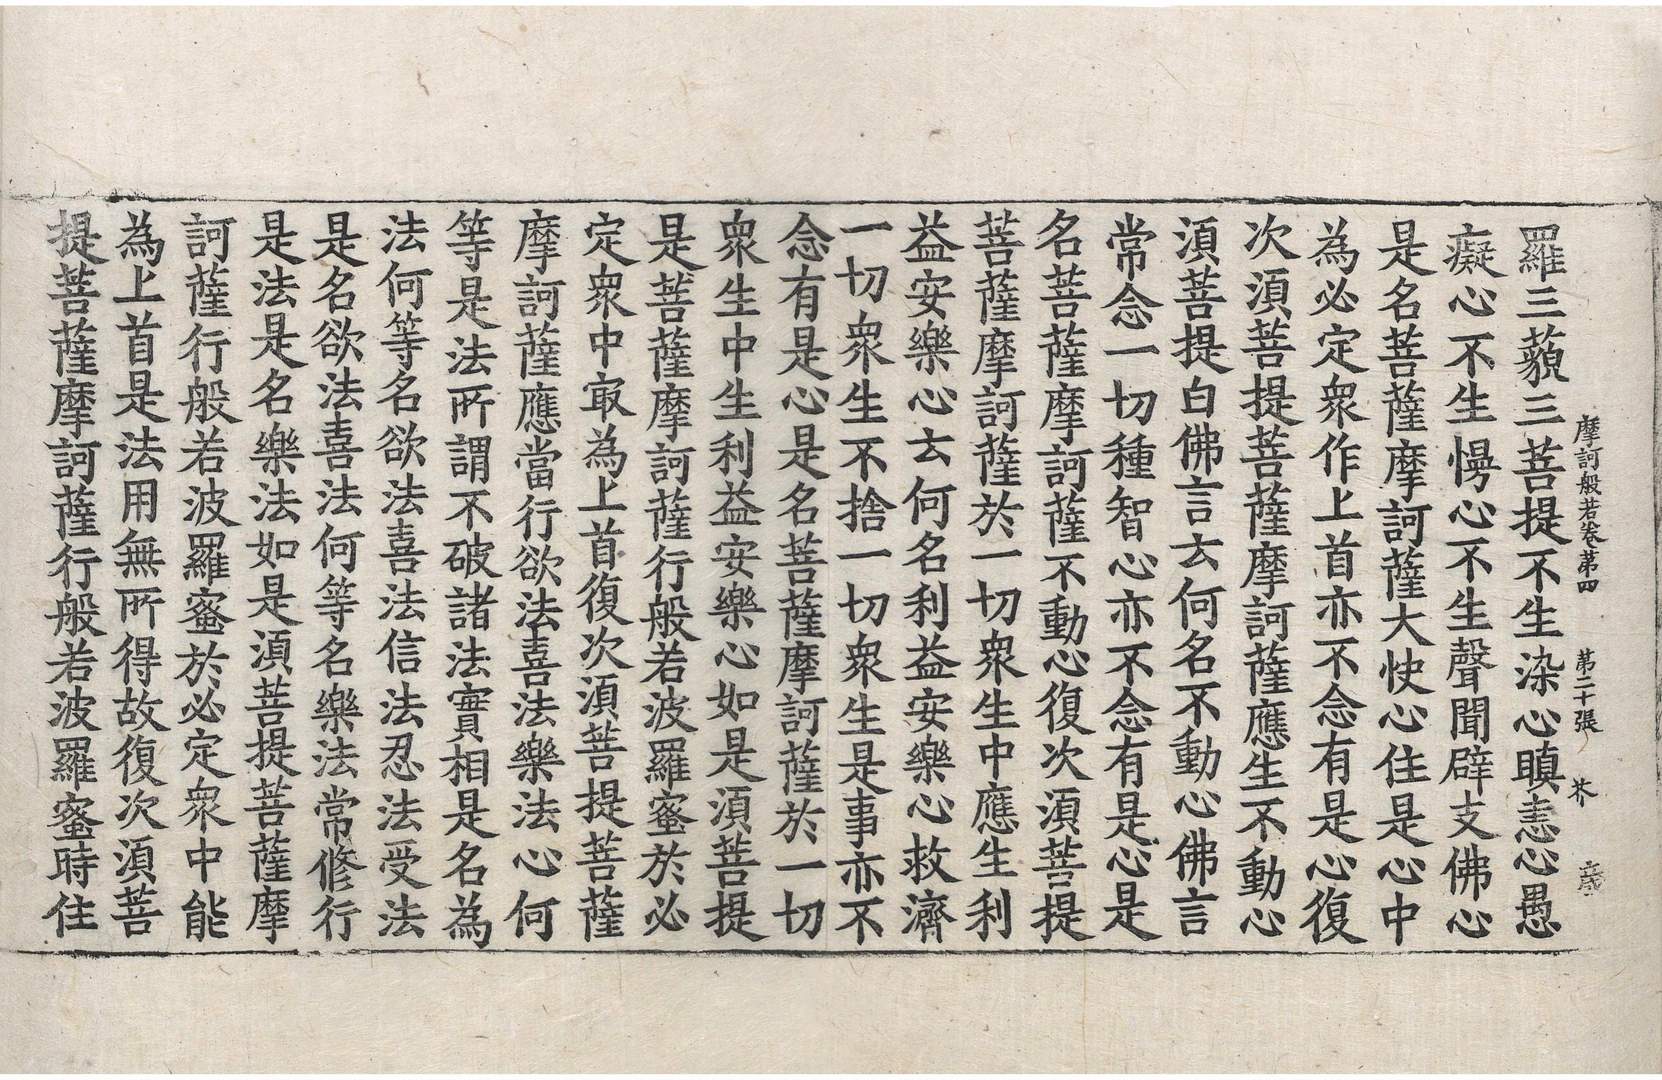 羅三藐三菩提不生染心瞋恚心愚
摩訶般若卷第四　第二十張　芥
癡心不生慢心不生聲聞辟支佛心
是名菩薩摩訶薩大快心住是心中
為必定衆作上首亦不念有是心復
次須菩提菩薩摩訶薩應生不動心
須菩提白佛言云何名不動心佛言
常念一切種智心亦不念有是心是
名菩薩摩訶薩不動心復次須菩提
菩薩摩訶薩於一切衆生中應生利
益安樂心云何名利益安樂心救濟
一切衆生不捨一切衆生是事亦不
念有是心是名菩薩摩訶薩於一切
衆生中生利益安樂心如是須菩提
是菩薩摩訶薩行般若波羅蜜於必
定衆中冣為上首復次須菩提菩薩
摩訶薩應當行欲法喜法樂法心何
等是法所謂不破諸法實相是名為
法何等名欲法喜法信法忍法受法
是名欲法喜法何等名樂法常修行
是法是名樂法如是須菩提菩薩摩
訶薩行般若波羅蜜於必定衆中能
為上首是法用無所得故復次須菩
提菩薩摩訶薩行般若波羅蜜時住